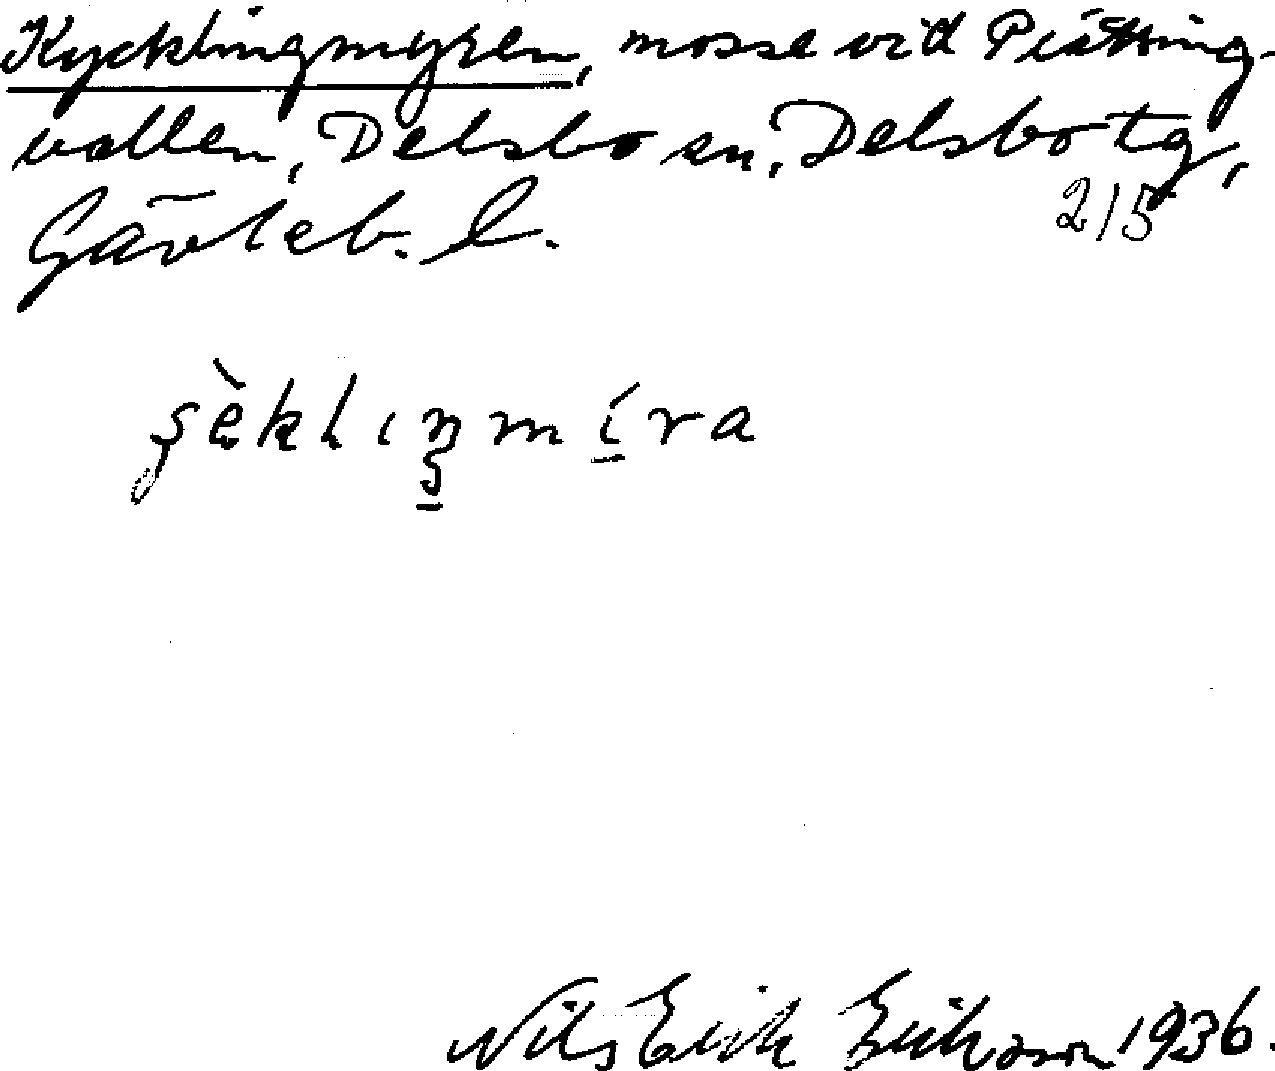 Kycklingmyren, mosse vid Piätting-
vallen, Delsbo sn, Delsbo tg,
Gävleb. l.
2/5
Nils Erik Eriksson 1936.